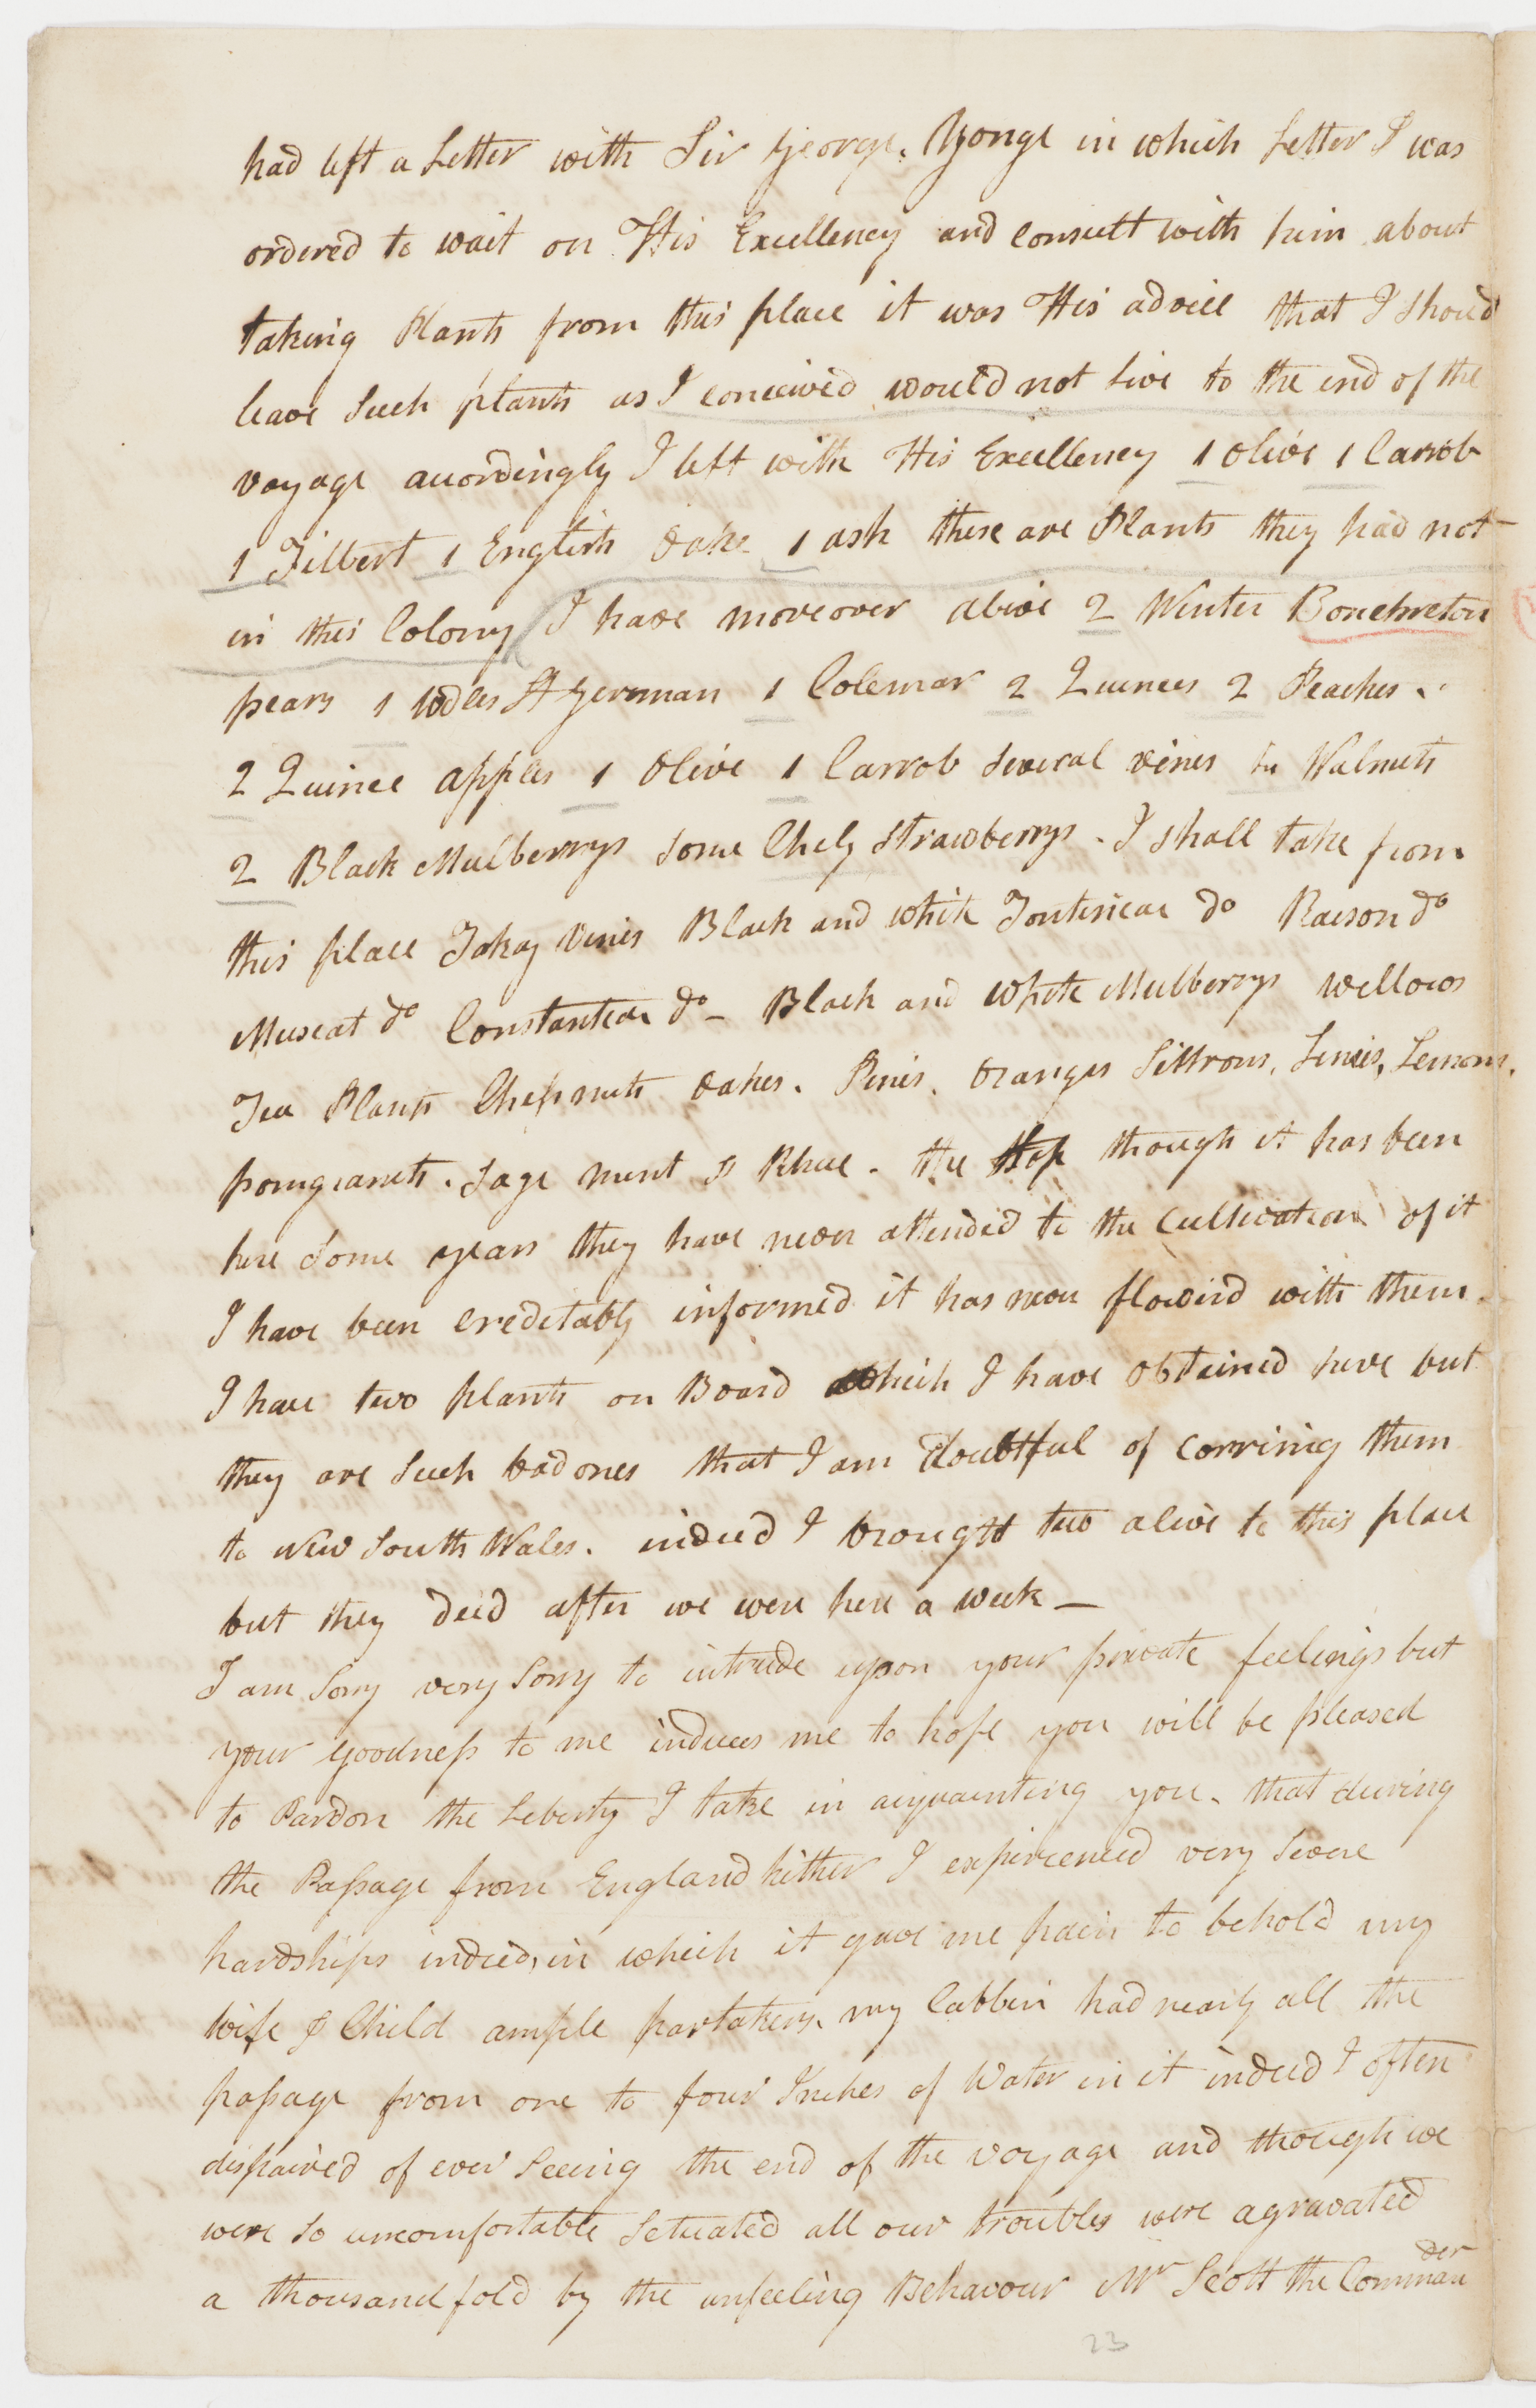 had left a Letter with Sir George Yonge in which Letter I was
ordered to wait on His Excellency and consult with him about
taking Plants from this place it was His advice that I should
leave Such plants as I conceived would not Live to the end of the
voyage accordingly I left with His Excellency 1 Olive 1 Carrob
1 Filbert 1 English Oake 1 ash these are Plants they had not
in this Colony I have moreover alive 2 Winter Bonchreton
pears 1 St German 1 Colemar 2 Quinces 2 Peaches
2 Quince apples 1 Olive 1 Carrob Several vines Walnuts
2 Black Mulberrys some Chely Strawberrys. I shall take from
this place Tokay Vines Black and white Fontinicac do Raeson do
Muscat do Constantia do - Black and White Mulberrys Willows
Tea Plants Chesnuts Oakes. Pines. Oranges Sittrons, Limes, Lemons,
pomgranets. Sage Mint & Rhue. the Hop though it has been
here Some years they have never attended to the Cultivation of it
I have been creditably informed it has never flowerd with them.
I have two plants on Board which I have obtained here but
they are Such bad ones that I am doubtful of Carring them
to New South Wales. indeed I brought two alive to this place
but they deid after we were here a week -
I am Sorry very Sorry to intrude upon your private feelings but
your goodness to me induces me to hope you will be pleased
to Pardon the Leberty I take in acquainting you. that during
the Passage from England hither I experienced very Severe
hardships indeed, in which it gave me pain to behold my
wife & Child ample partakers, my Cabbin had nearly all the
passage from one to four Inches of Water in it indeed I often
dispaired of ever Seeing the end of the voyage and though we
were So uncomfortable Setuated all our troubles were agravated
a thousand fold by the unfeeling Behavour Mr Scott the Commander
23